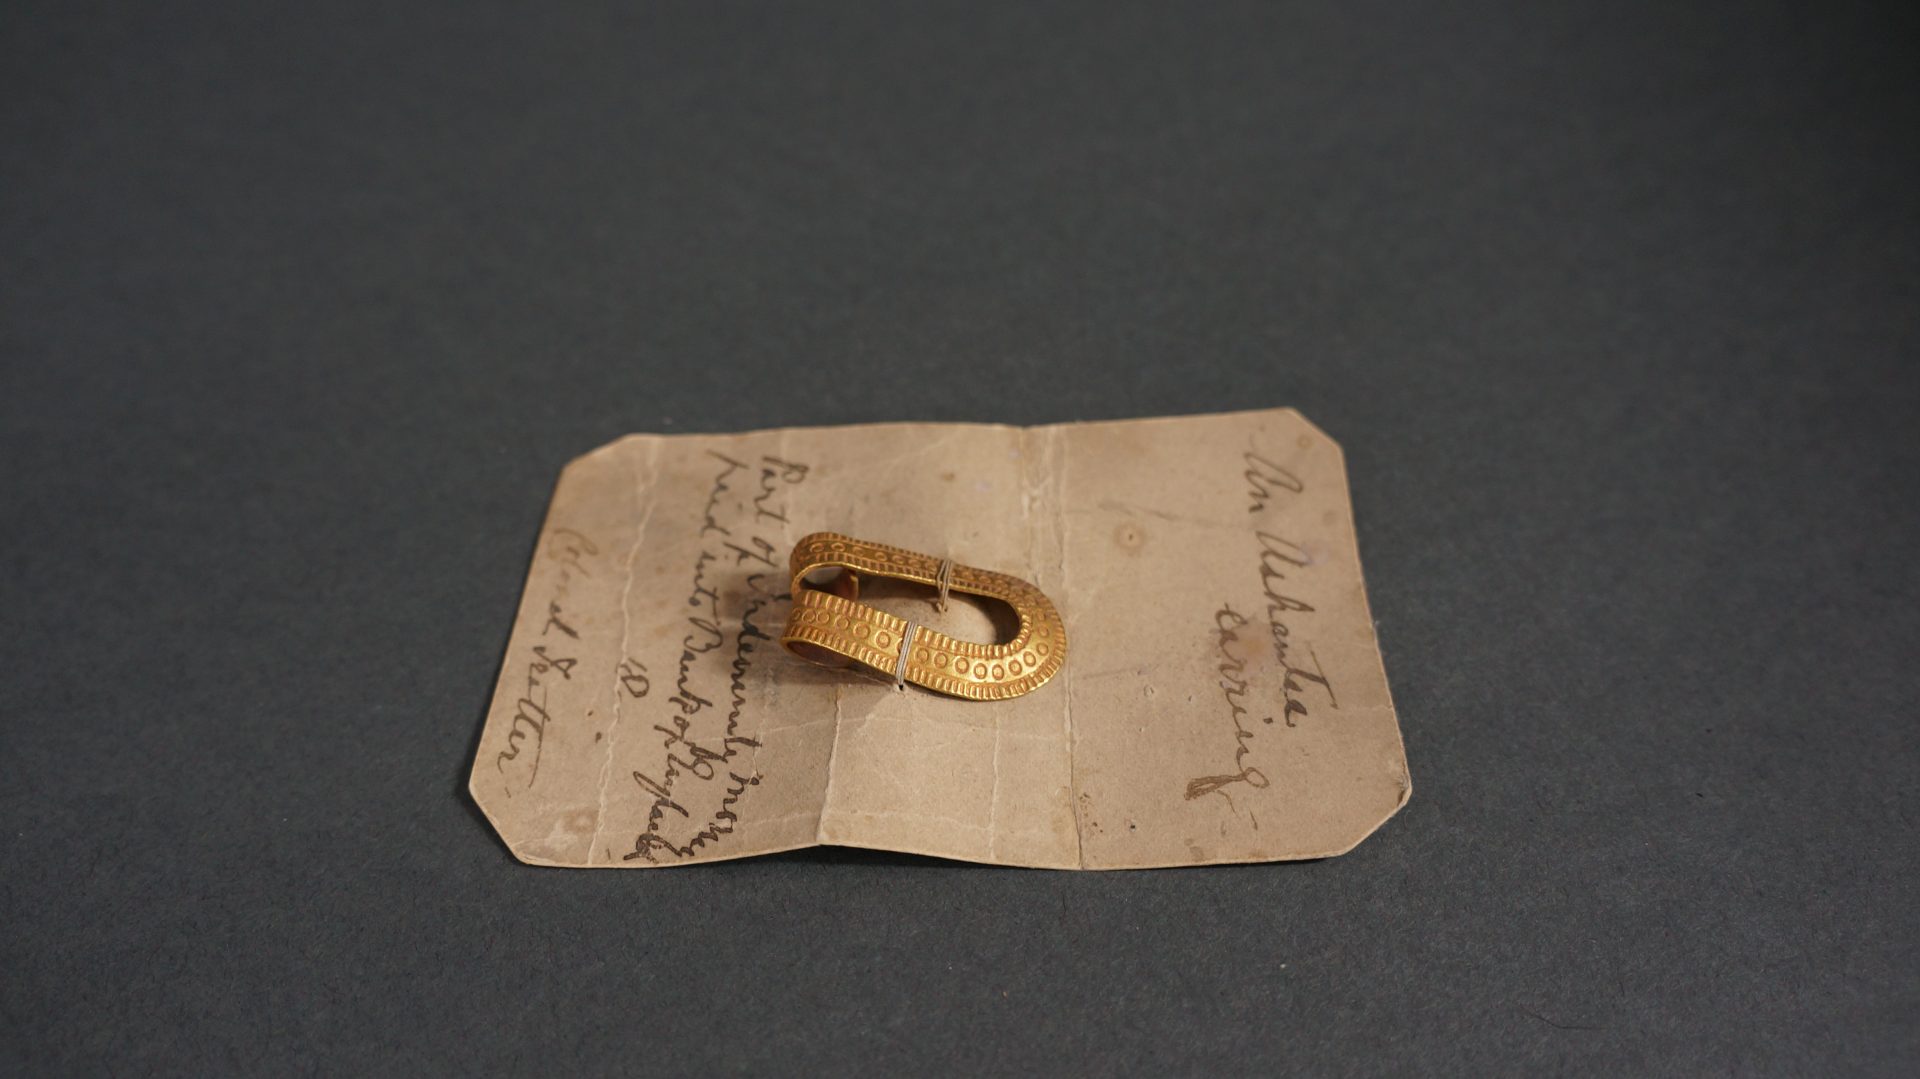 An Ashantee
earring
Part of indemnity money
paid into Bank of England